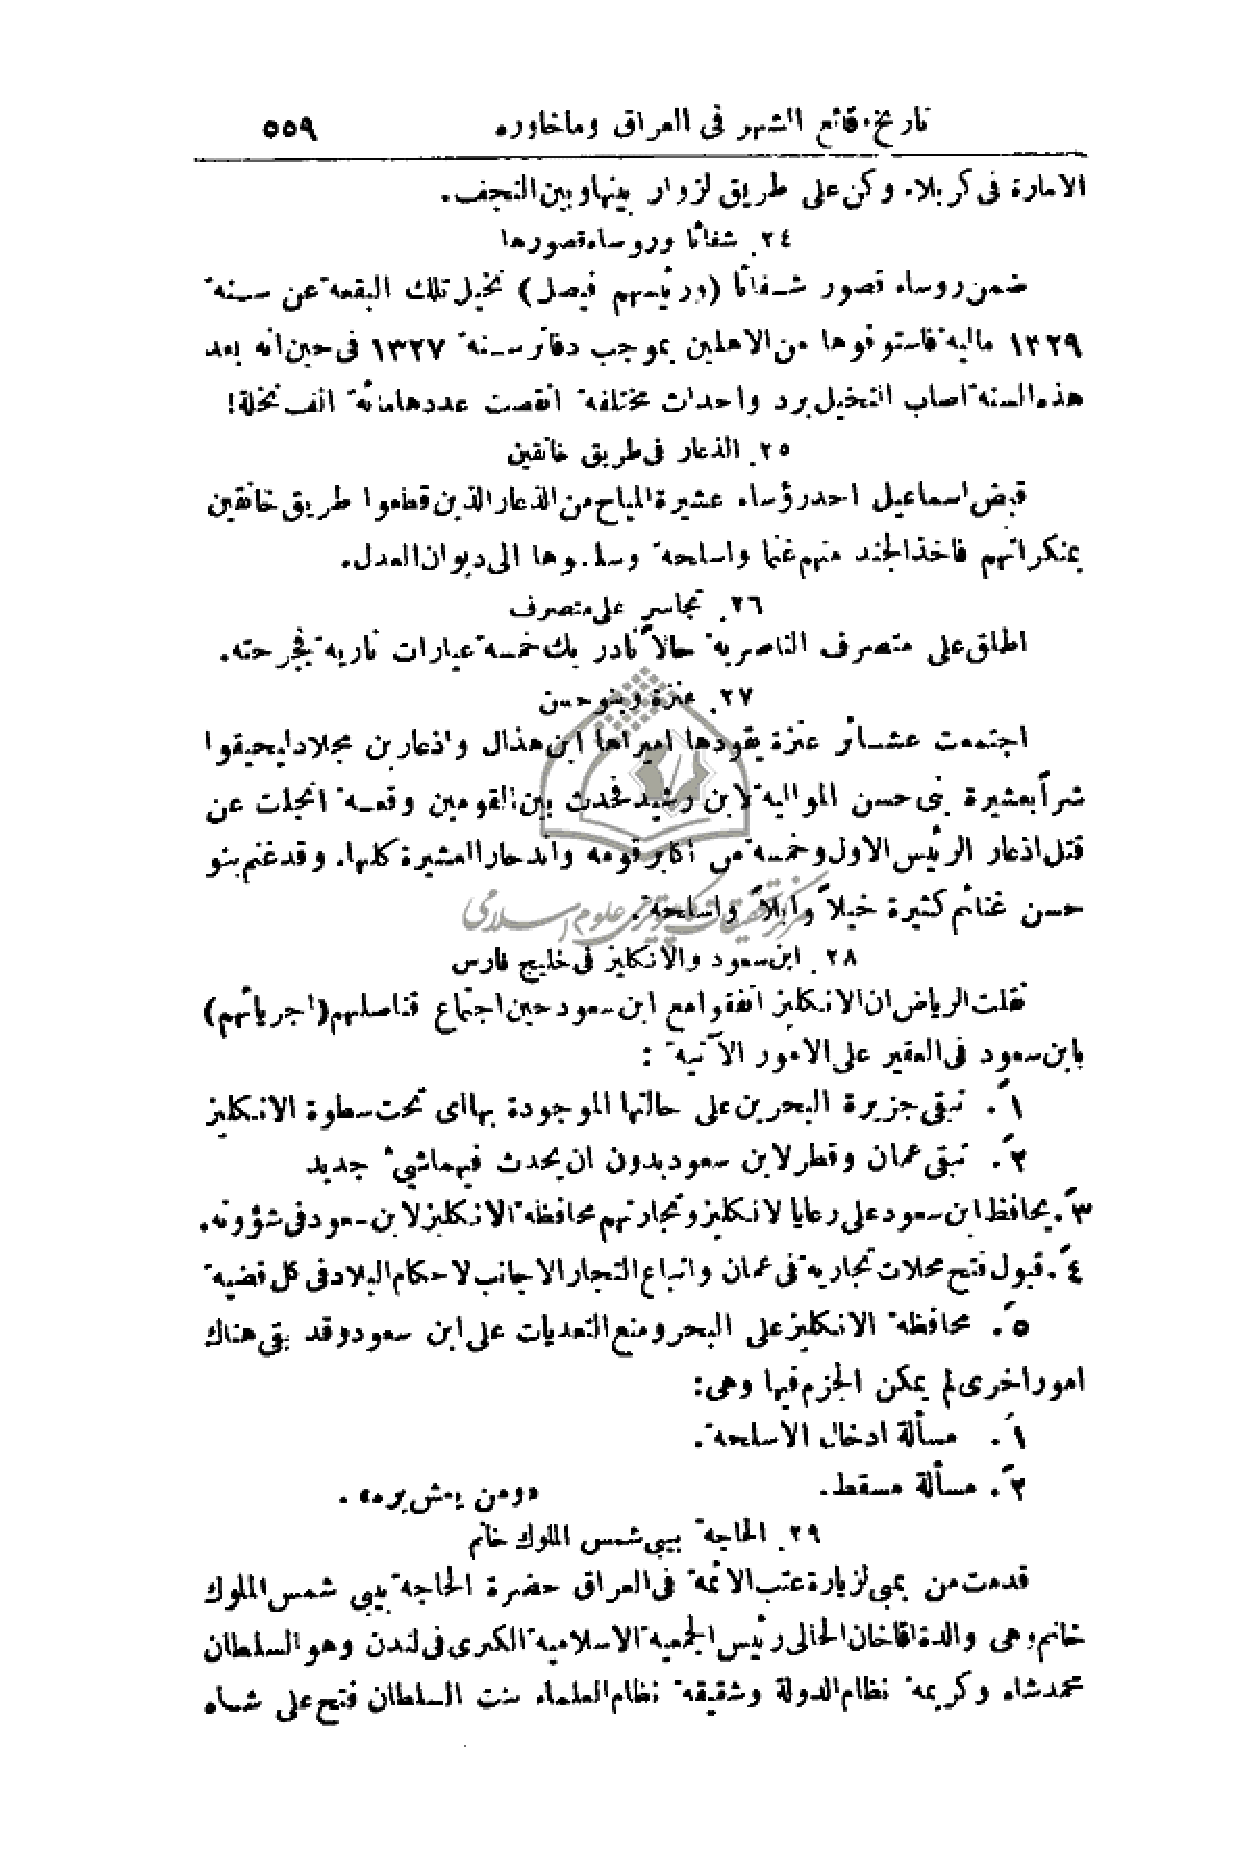 تاريخ وقائع الشهر فى العراق وماجاوره ٥٥٩
الامارة فى كربلاء وكمن على طريق لزوار بينها وبين النجف.
٢٤. شفاثا وروساء قصورها
ضمن روساء قصور شفاثا (ورئيسهم فيصل) نخيل تلك البقعة عن سنة
١٣٢٩ مالية فاستوفوها من الاهلين بموجب دفاتر سنة ١٣٢٧ فى حين انه بعد
هذه السنة اصاب النخيل برد واحداث مختلفة انقصت عددها مائة الف نخلة!
٢٥. الذعار فى طريق خانقين
قبض اسماعيل احد رؤساء عشيرة المياح من الذعار الذين قطعوا طريق خانقين
بمنكراتهم فاخذ الجند منهم غنما واسلحة وسلموها الى ديوان العدل.
٢٦. تجاسر على متصرف
اطلق على متصرف الناصرية حالاً نادر بك خمسة عيارات نارية فجرحته.
٢٧. عنزة وبنو حسن
اجتمعت عشائر عنزة يقودها اميراها ابن هذال واذعار بن مجلاد ليحيقوا
شراً بعشيرة بنى حسن الموالية لابن رشيد فحدث بين القومين وقعة انجلت عن
قتل اذعار الرئيس الاول وخمسة من اكابر قومه واندحار العشيرة كلها. وقد غنم بنو
حسن غنائم كثيرة خيلاً وابلاً واسلحة.
مركز تحقيقات كامپيوترى علوم اسلامى
٢٨. ابن سعود والانكليز فى خليج فارس
نقلت الرياض ان الانكليز اتفقوا مع ابن سعود حين اجتماع قناصلهم (اجرياتهم)
بابن سعود فى العقير على الامور الآتية :
١ً. تبقى جزيرة البحرين على حالتها الموجودة بها اى تحت سطوة الانكليز
٢ً. تبقى عمان وقطر لابن سعود بدون ان يحدث فيهما شيء جديد
٣ً. يحافظ ابن سعود على رعايا لانكليز وتجارتهم محافظة الانكليز لابن سعود فى شؤونه.
٤ً. قبول فتح محلات تجارية فى عمان واتباع التجار الاجانب لاحكام البلاد فى كل قضية
٥ً. محافظة الانكليز على البحر ومنع التعديات على ابن سعود وقد بقى هناك
امور اخرى لم يمكن الجزم فيها وهى:
١ً. مسألة ادخال الاسلحة.
٢ً. مسألة مسقط. «ومن يعش يره».
٢٩. الحاجة بيبى شمس الملوك خانم
قدمت من بمبى لزيارة عتب الائمة فى العراق حضرة الحاجة بيبى شمس الملوك
خانم وهى والدة اقاخان الحالى رئيس الجمعية الاسلامية الكبرى فى لندن وهو السلطان
محمد شاه وكريمة نظام الدولة وشقيقة نظام العلماء بنت السلطان فتح على شاه